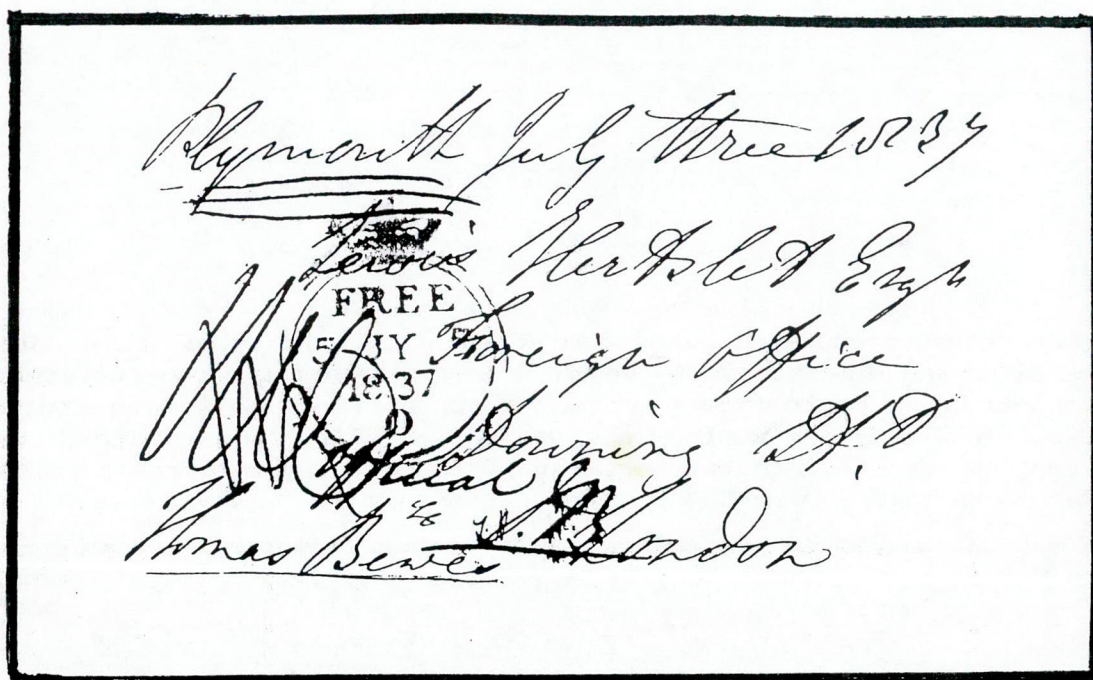 Plymouth July three 1837
Lewis Hertslet Esqr
FREE
5 JY
1837
Foreign Office
Downing St
London
Thomas Bewes